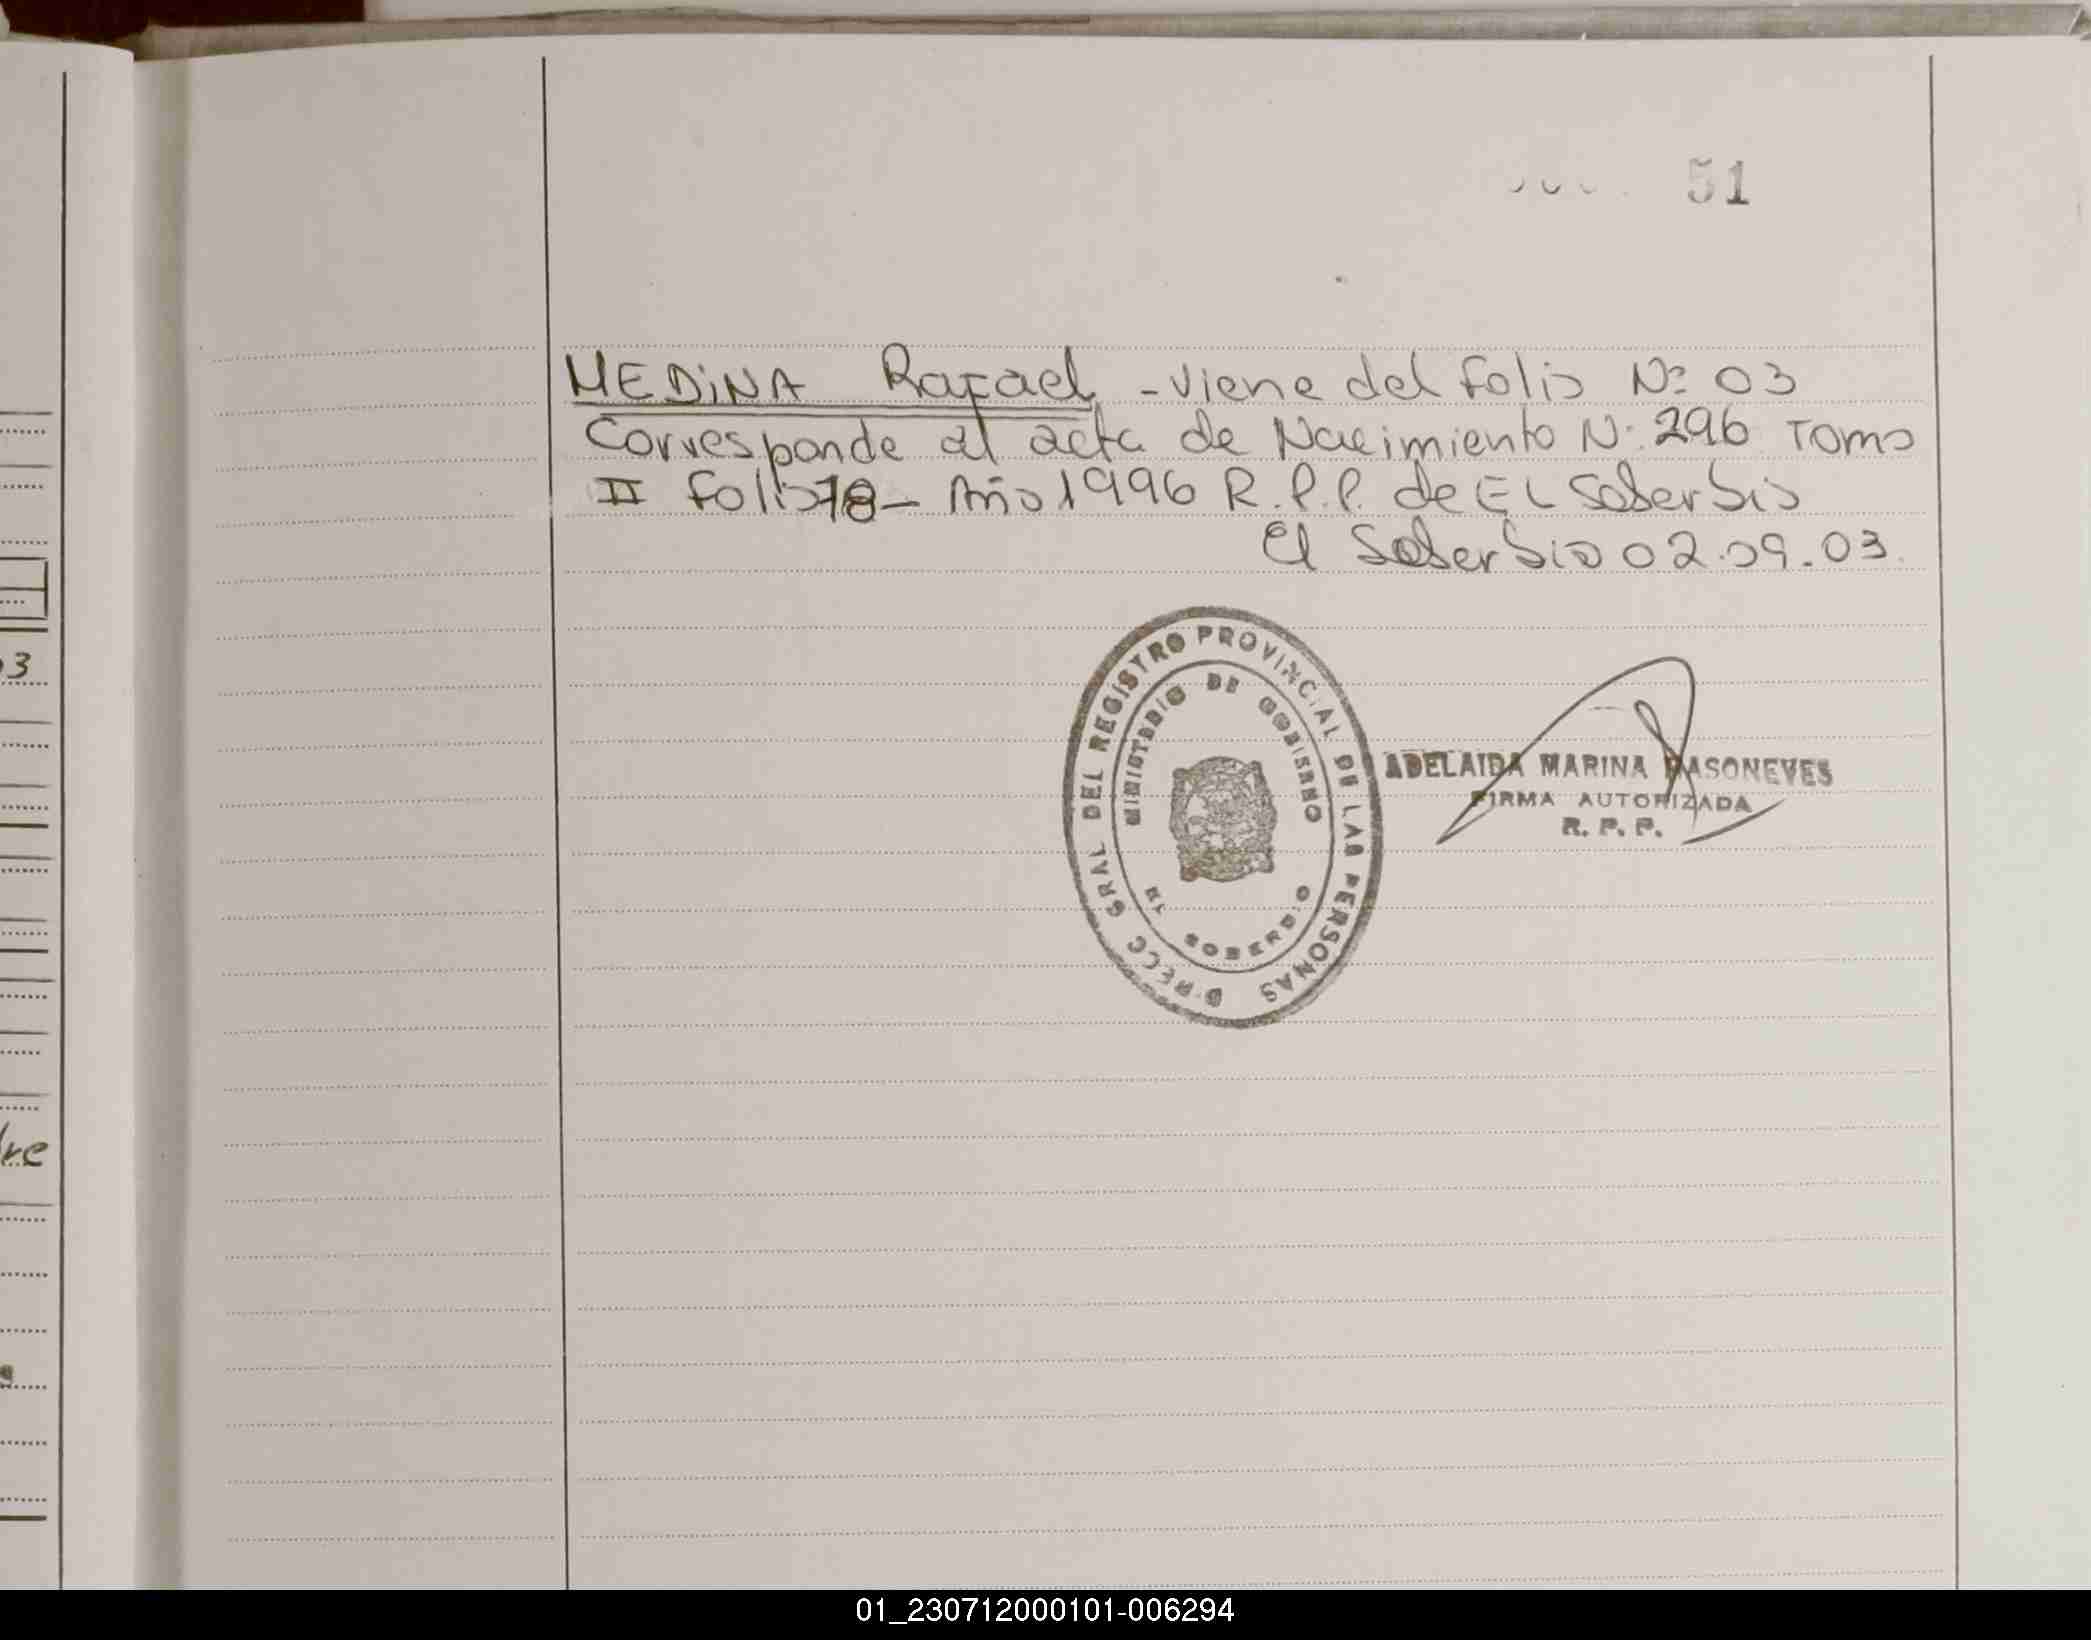 51
MEDINA Rafael - Viene del folio Nº 03
Corresponde al acta de Nacimiento Nº 296 Tomo
II folio 78 - Año 1996 R.P.P. de EL Soberbio
El Soberbio 02.09.03.
DIRECC GRAL DEL REGISTRO PROVINCIAL DE LAS PERSONAS
MINISTERIO DE GOBIERNO
EL SOBERBIO
ADELAIDA MARINA DASONEVES
FIRMA AUTORIZADA
R. P. P.
3
re
01_230712000101-006294